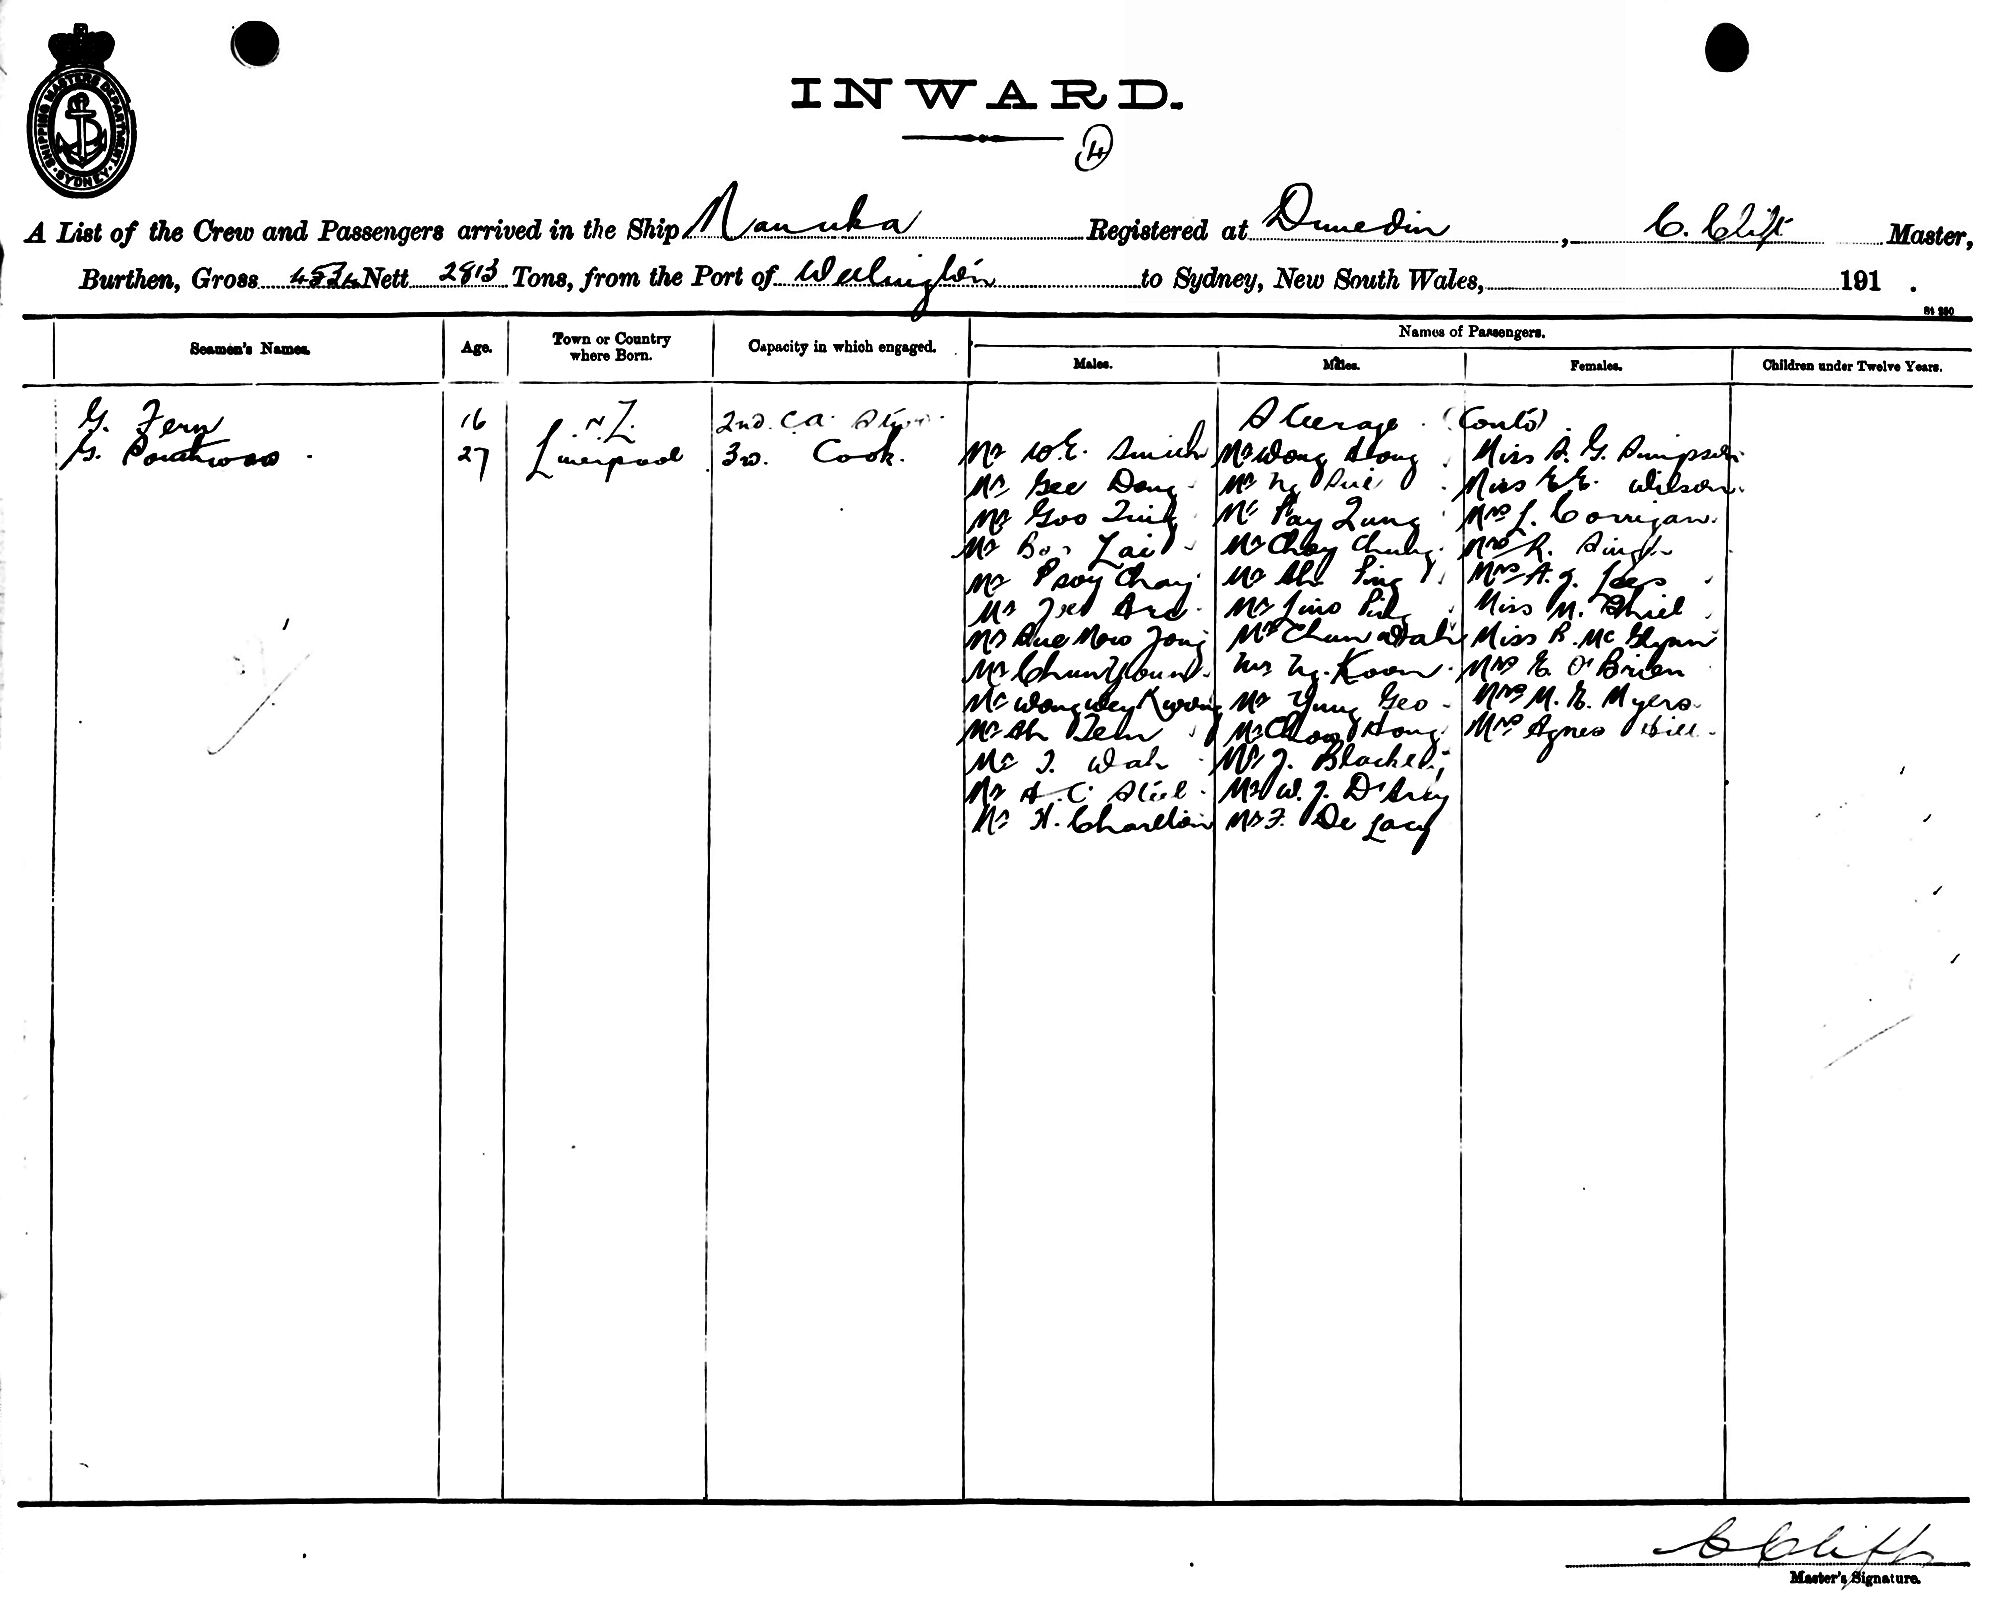 SHIPPING MASTERS DEPARTMENT
SYDNEY
INWARD.
4
A List of the Crew and Passengers arrived in the Ship Manuka Registered at Dunedin, C. Clift Master,
Burthen, Gross 4534 Nett 2813 Tons, from the Port of Wellington to Sydney, New South Wales, 191 .
Seamen's Names. Age. Town or Country where Born. Capacity in which engaged. Names of Passengers.
Males. Males. Females. Children under Twelve Years.
Steerage (Contd)
G. Fern 16 N.Z. 2nd. Stew.
G. 27 Liverpool 3rd. Cook. Mr W.E. Smith Mr Wong Hong Miss A. G. Simpson
Mr Gee Dong Mr Ng Sue Miss E.E. Wilson
Mr Goo Mr Fay Lung Mrs L. Corrigan
Mr Lai Mr Choy Chung Mrs R. Singh
Mr Choy Mr Ah Ping Mrs A. J. Lees
Mr Mr Miss M. Shiel
Mr Sue Mow Mr Chun Wah Miss B. McGlynn
Mr Chun Youn Mr Ng. Koon Mrs E. O'Brien
Mr Wong Wey Kwong Mr Yung Geo Mrs M. E. Myers
Mr Ah Mr Choo Hong Mrs Agnes Hill
Mr J. Wah Mr J.
Mr A. C. Mr W. J. D'Arcy
Mr H. Charlton Mr F. De Lacy
C Clift
Master's Signature.